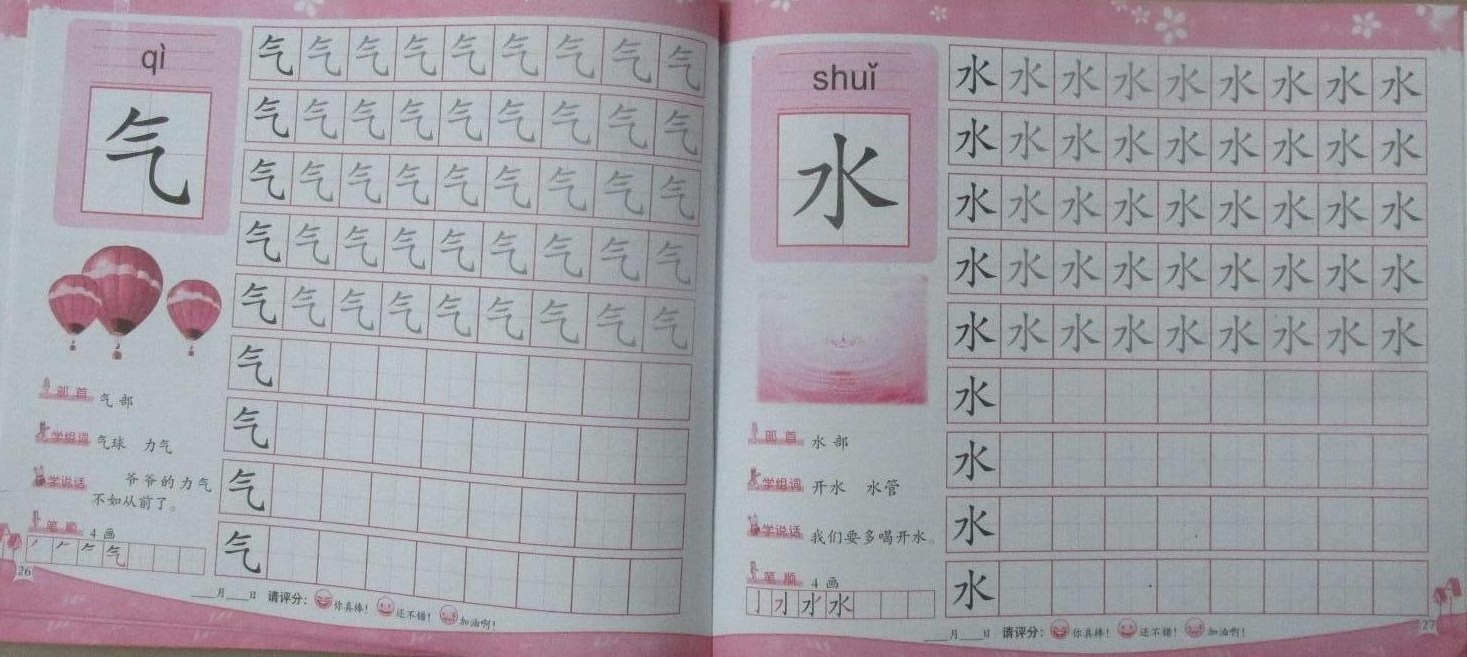 qì
气
气 气 气 气 气 气 气 气 气
气 气 气 气 气 气 气 气 气
气 气 气 气 气 气 气 气 气
气 气 气 气 气 气 气 气 气
气 气 气 气 气 气 气 气 气
气
气
气
气
部首 气部
学组词 气球 力气
学说话 爷爷的力气
不如从前了。
笔顺 4画
气
26
____月____日 请评分： 你真棒！ 还不错！ 加油啊！
shuǐ
水
水 水 水 水 水 水 水 水 水
水 水 水 水 水 水 水 水 水
水 水 水 水 水 水 水 水 水
水 水 水 水 水 水 水 水 水
水 水 水 水 水 水 水 水 水
水
水
水
水
部首 水部
学组词 开水 水管
学说话 我们要多喝开水。
笔顺 4画
水
____月____日 请评分： 你真棒！ 还不错！ 加油啊！
27